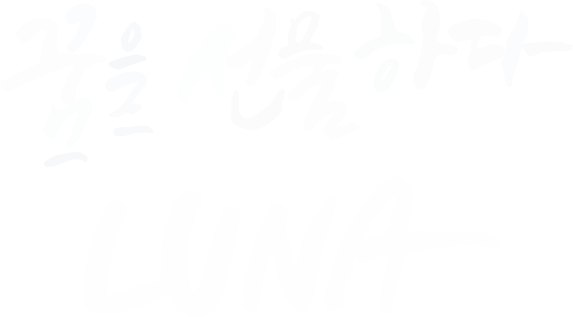 꿈을 선물하다
LUNA